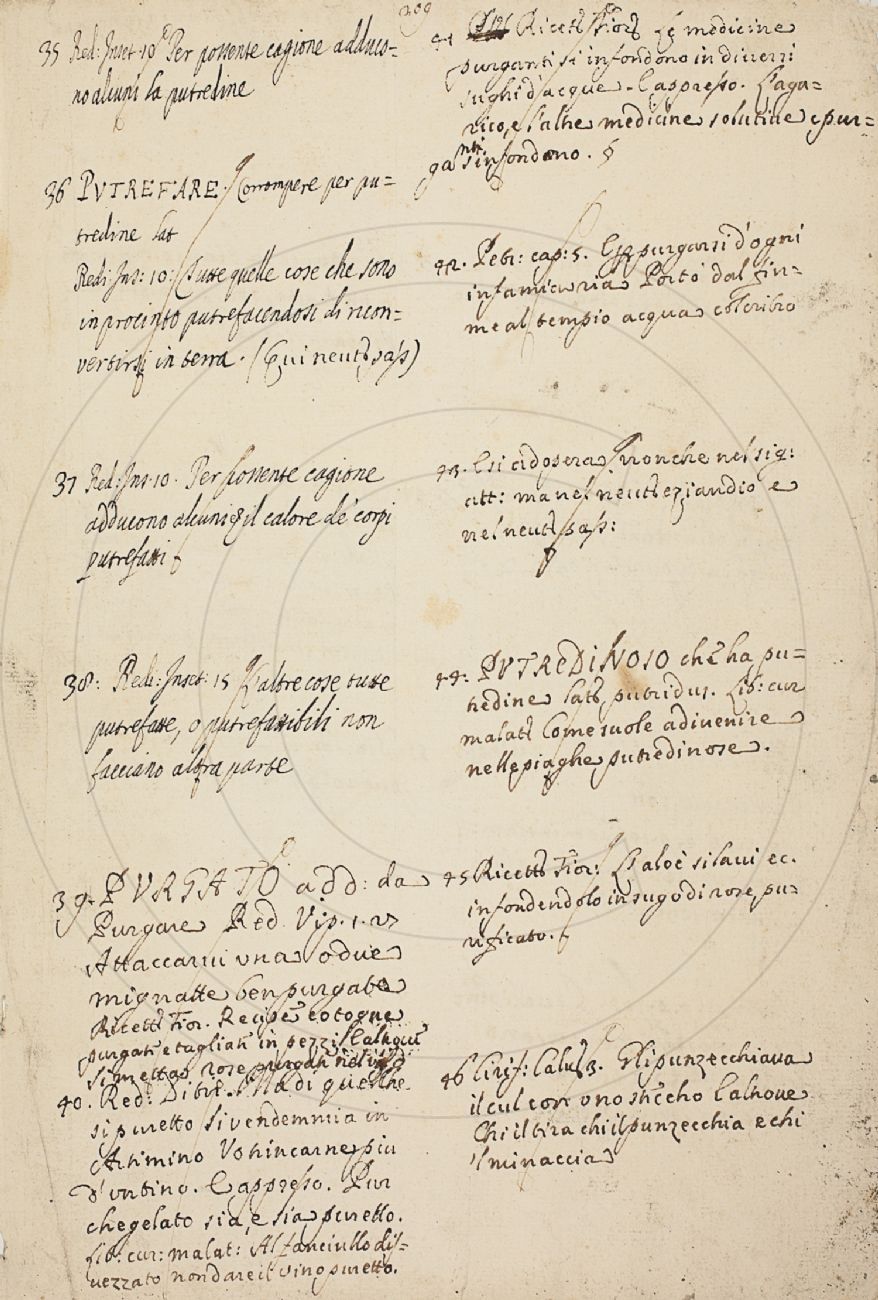 309
35 Red: Inset: 10 Per possente cagione adduco=
no alcuni la putredine
36 PVTREFARE. Corrompere per pu=
tredine lat
Redi Ins: 10: Tutte quelle cose che sono
in procinto putrefacendosi di ricon=
vertirsi in terra. (Qui neut: pass)
37 Red: Ins. 10. Per possente cagione
adducono alcuni il calore de' corpi
putrefatti
38: Redi: Inset: 15 L'altre cose tutte
putrefatte, o putrefattibili non
facciano altra parte
39. PVRGATO add: da
Purgare Red Vip. 1. 27
Attaccarui vna o due
mignatte ben purgate
Ricett: Fior. Recipe cotogne
purgate e tagliate in pezzi E altroue
si metta rose purgate nel
40. Red: Ditir. quel che
si puretto si vendemmia in
Artimino Vo' trincarne piu
d'un tino. E appresso. Pur
che gelato sia, e sia puretto.
Lib: cur: malat: Al fanciullo dis=
uezzato non dare il vino puretto.
41 Ricett: Fior: Le medicine
purganti si infondono in diuersi
sughi d'acque. E appresso. L'aga=
rico, e l'altre medicine solutiue e pur=
ganti s'infondono.
42. Petr: cap: 5. E purgarsi d'ogni
infamia ria Portò dal fiu=
me al tempio acqua col cribro
43. E si adopera non che nel sig:
att: ma nel neut: eziandio e
nel neut: pass:
44: PVTREDINOSO che ha pu=
tredine lat: putridus. Lib: cur
malat: Come suole adiuenire
nelle piaghe putredinose.
45 Ricett: Fior: L'aloè si laui ec.
infondendolo in sugo di rose pu=
rificato.
46 Cirif: Calu: 3. E li punzecchiaua
il cul con vno stecho E altroue
Chi il tira chi il punzecchia e chi
'l minaccia